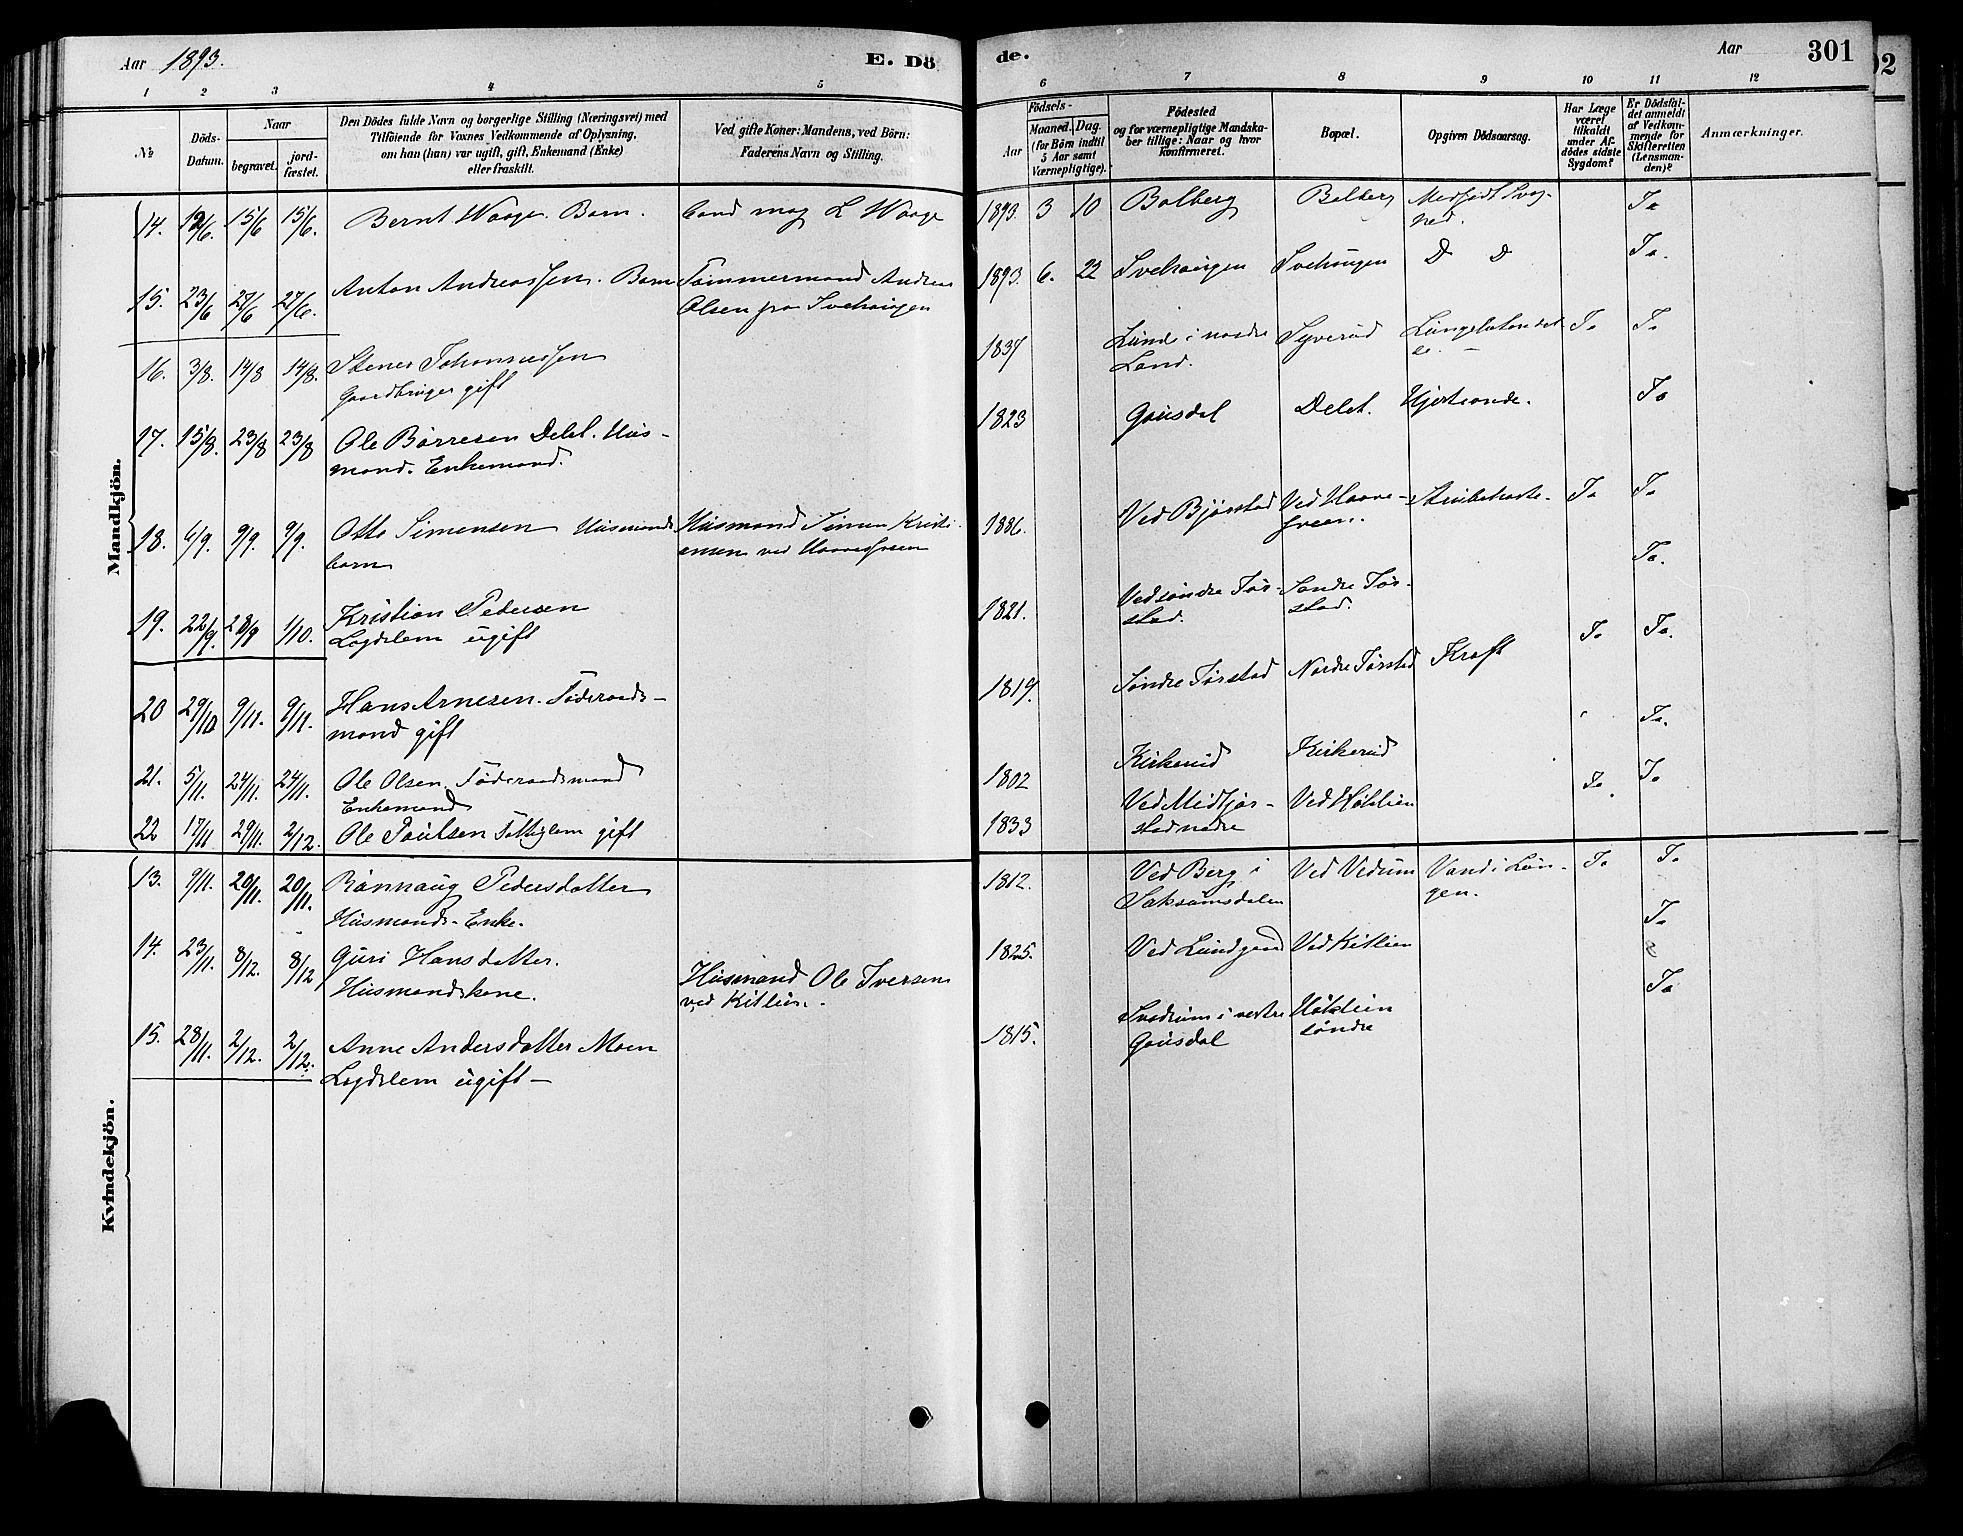 Aar 1893.
E. Dö
de.
Aar
301
1 2 3 4 5
6 7 8 9 10 11 12
№
Döds-
Datum.
Naar
begravet.
jord-
fæstet.
Den Dödes fulde Navn og borgerlige Stilling (Næringsvei) med
Tilföiende for Voxnes Vedkommende af Oplysning,
om han (hun) var ugift, gift, Enkemand (Enke)
eller fraskilt.
Ved gifte Koner: Mandens, ved Börn:
Faderens Navn og Stilling.
Födsels-
Aar
Maaned.
Dag.
(for Börn indtil
5 Aar samt
Værnepligtige).
Födested
og for værnepligtige Mandska-
ber tillige: Naar og hvor
Konfirmeret.
Bopæl.
Opgiven Dödsaarsag.
Har Læge
været
tilkaldt
under Af-
dödes sidste
Sygdom?
Er Dödsfal-
det anmeldt
af Vedkom-
mende for
Skifteretten
(Lensman-
den)?
Anmærkninger.
Mandkjön.
14. 12/6. 15/6 15/6. Bernt Waage. Barn. L Waage 1893. 3 10 Bolberg Bolberg Medfödt Svag-
hed. Ja
15. 23/6 27/6 27/6. Anton Andreassen. Barn Tömmermand Andreas
Olsen fra Svehaugen 1893. 6. 22 Svehaugen Svehaugen D D Ja.
16. 3/8. 14/8 14/8. Stener Johannessen
Gaardbruger gift 1837 Lunde i nordre
Land. Syverud Ja Ja
17. 15/8. 23/8 23/8 Ole Börresen Delet. Hus-
mand. Enkemand. 1823 Gausdal Delet. Hjerteonde. Ja
18. 6/9. 9/9. 9/9. Otto Simensen Husmands
barn Husmand Simen Kristi-
ansen ved 1886. Ved Bjørstad Ja Ja
19. 22/9. 28/9 1/10. Kristian Pedersen
Lægdslem ugift 1821. Ved søndre Tør-
stad. Søndre Tør-
stad. Ja.
20 29/10 9/11. 9/11. Hans Arnesen. Föderaads-
mand gift 1819. Søndre Tørstad Nordre Tørstad Kræft Ja Ja.
21. 5/11. 24/11. 24/11. Ole Olsen. Föderaadsmand
Enkemand 1802 Kirkerud Kirkerud Ja.
22 17/11 29/11. 2/12. Ole Paulsen Fattiglem gift 1833 Ved Midtjør-
stad nedre Ved Høklien Ja. Ja
Kvindekjön.
13. 9/11. 20/11. 20/11. Rønnaug Pedersdatter
Husmands-Enke. 1812. Ved Berg i
Saksumsdalen Ved Vedum Vand i Lun-
gen. Ja Ja
14. 23/11. 8/12. 8/12 Guri Hansdatter.
Husmandskone. Husmand Ole Iversen
ved Kitlien. 1825. Ved Lundgaard Ved Kitlien Ja
15. 28/11. 2/12. 2/12. Anne Andersdatter Moen
Lægdslem ugift — 1815. Svedrum i vestre
Gausdal Høklien
søndre Ja